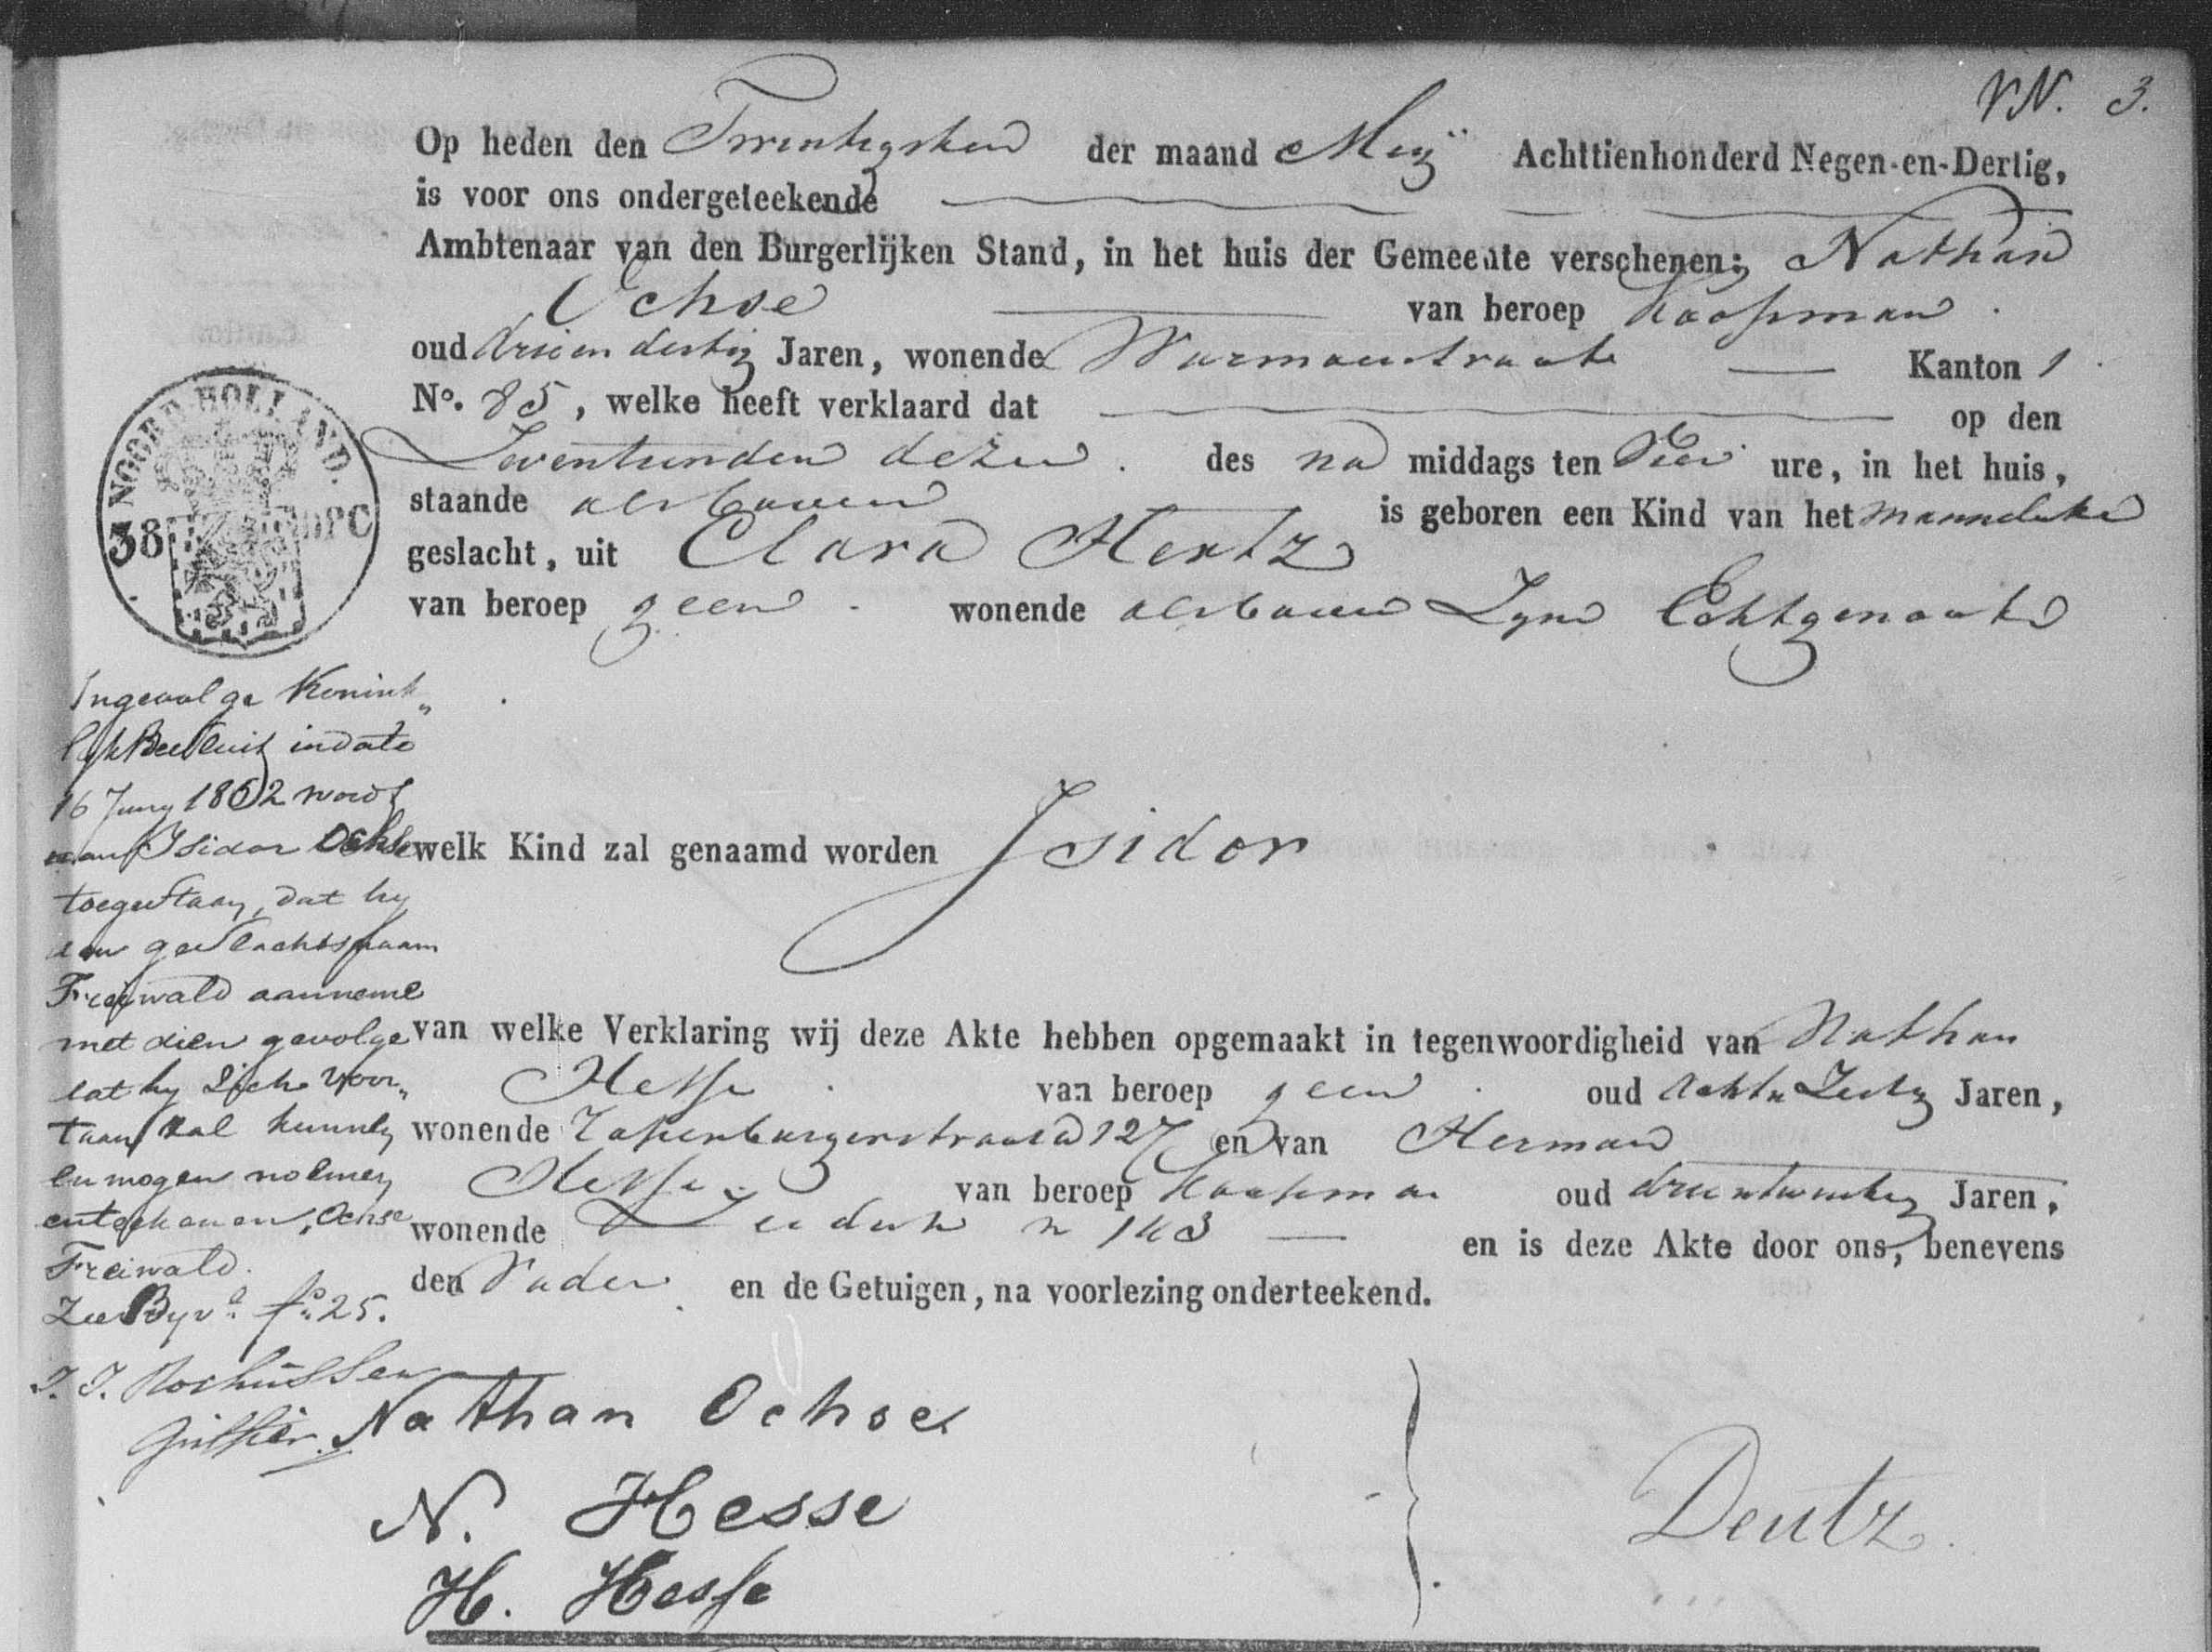 VN. 3.
Op heden den Twintigsten der maand Meij Achttienhonderd Negen-en-Dertig,
is voor ons ondergeteekende
Ambtenaar van den Burgerlijken Stand, in het huis der Gemeente verschenen; Nathan
Ochse van beroep Koopman
oud drie en dertig Jaren, wonende Warmoestraate Kanton 1
No. 85, welke heeft verklaard dat op den
Zeventienden dezer. des na middags ten ure, in het huis,
staande als boven is geboren een Kind van het mannelike
geslacht, uit Clara Hertz
van beroep geen wonende als boven Zyne Echtgenoote
NOORD-HOLLAND.
38
Ingevolge Konink„
lyk Besluit in dato
16 Juny 1862 wordt
aan Isidor Ochse
toegestaan, dat hy
den geslachtsnaam
Freiwald aanneme
met dien gevolge
dat hy zich voor„
taan zal kunnen
en mogen noemen
en teekenen, Ochse
Freiwald.
Zie Byve. fo. 25.
J. J. Rochussen
Griffier.
welk Kind zal genaamd worden Isidor
van welke Verklaring wij deze Akte hebben opgemaakt in tegenwoordigheid van Nathan
Hesse van beroep geen oud Jaren,
wonende Zapenburgerstraat 127 en van Herman
Hesse. van beroep Koopman oud drie en twintig Jaren,
wonende Zeedijk n en is deze Akte door ons, benevens
den Vader en de Getuigen, na voorlezing onderteekend.
Nathan Ochse
N. Hesse
H. Hesse
Deutz